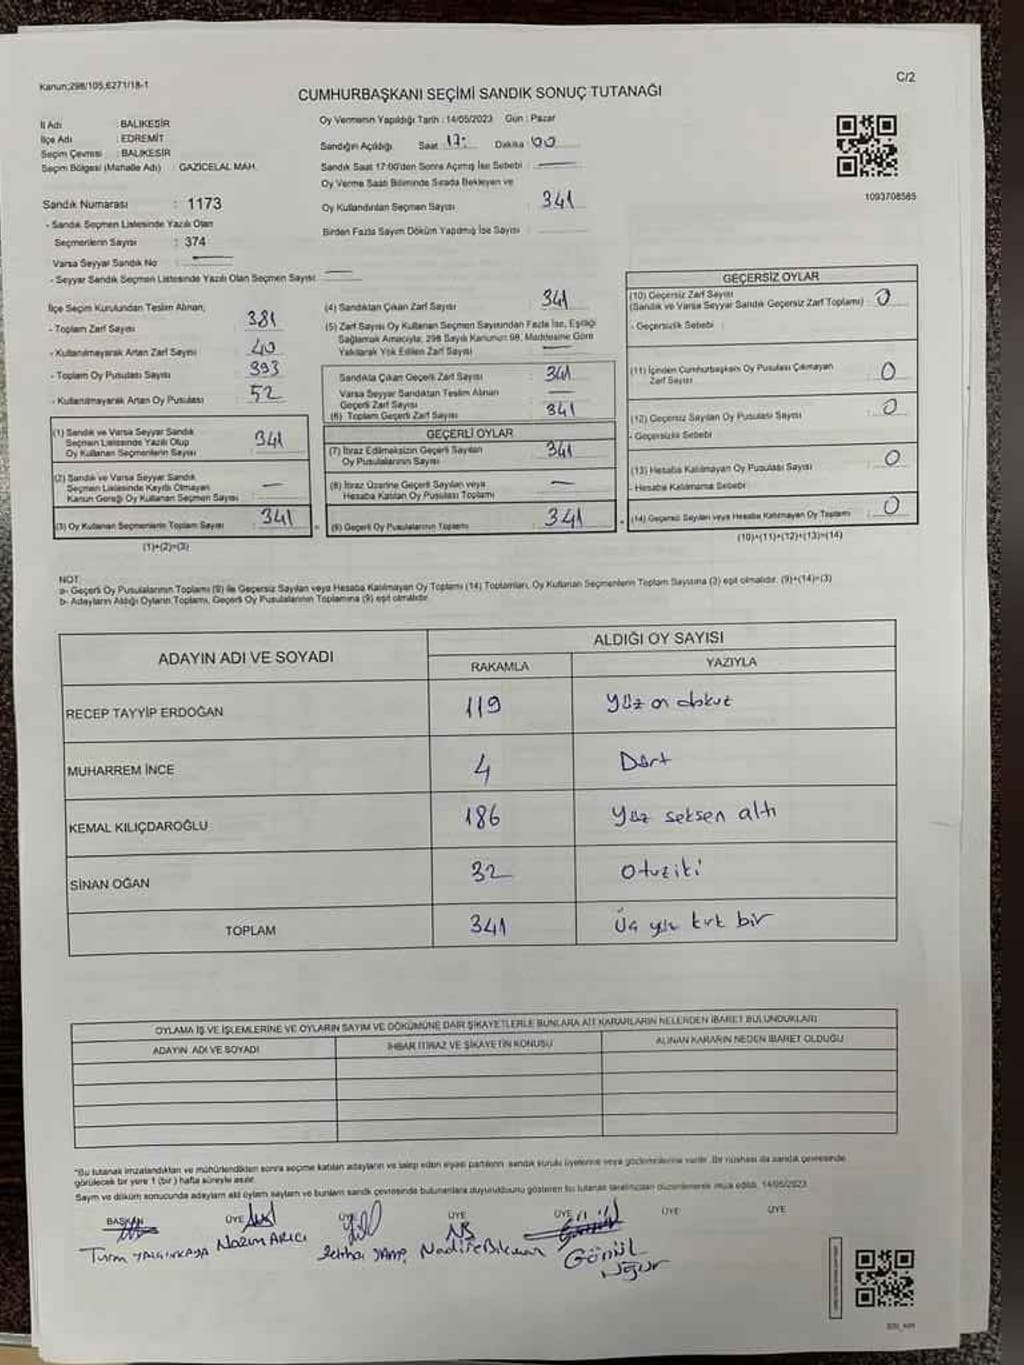 Kanun;298/105,6271/18-1
C/2
CUMHURBAŞKANI SEÇİMİ SANDIK SONUÇ TUTANAĞI
İl Adı : BALIKESİR
İlçe Adı : EDREMİT
Seçim Çevresi : BALIKESİR
Seçim Bölgesi (Mahalle Adı) : GAZİCELAL MAH.
Oy Vermenin Yapıldığı Tarih : 14/05/2023 Gün : Pazar
Sandığın Açıldığı Saat 17: Dakika 00
Sandık Saat 17:00'den Sonra Açılmış İse Sebebi :
Oy Verme Saati Bitiminde Sırada Bekleyen ve
Oy Kullandırılan Seçmen Sayısı : 341
Birden Fazla Sayım Döküm Yapılmış İse Sayısı :
1093708565
Sandık Numarası : 1173
- Sandık Seçmen Listesinde Yazılı Olan
Seçmenlerin Sayısı : 374
Varsa Seyyar Sandık No :
- Seyyar Sandık Seçmen Listesinde Yazılı Olan Seçmen Sayısı:
İlçe Seçim Kurulundan Teslim Alınan;
- Toplam Zarf Sayısı : 381
- Kullanılmayarak Artan Zarf Sayısı : 40
- Toplam Oy Pusulası Sayısı : 393
- Kullanılmayarak Artan Oy Pusulası : 52
(1) Sandık ve Varsa Seyyar Sandık
Seçmen Listesinde Yazılı Olup
Oy Kullanan Seçmenlerin Sayısı : 341
(2) Sandık ve Varsa Seyyar Sandık
Seçmen Listesinde Kayıtlı Olmayan
Kanun Gereği Oy Kullanan Seçmen Sayısı : —
(3) Oy Kullanan Seçmenlerin Toplam Sayısı : 341
(1)+(2)=(3)
(4) Sandıktan Çıkan Zarf Sayısı : 341
(5) Zarf Sayısı Oy Kullanan Seçmen Sayısından Fazla İse, Eşitliği
Sağlamak Amacıyla, 298 Sayılı Kanunun 98. Maddesine Göre
Yakılarak Yok Edilen Zarf Sayısı :
Sandıkta Çıkan Geçerli Zarf Sayısı : 341
Varsa Seyyar Sandıktan Teslim Alınan
Geçerli Zarf Sayısı :
(6) Toplam Geçerli Zarf Sayısı : 341
GEÇERLİ OYLAR
(7) İtiraz Edilmeksizin Geçerli Sayılan
Oy Pusulalarının Sayısı : 341
(8) İtiraz Üzerine Geçerli Sayılan veya
Hesaba Katılan Oy Pusulası Toplamı : —
(9) Geçerli Oy Pusulalarının Toplamı : 341
GEÇERSİZ OYLAR
(10) Geçersiz Zarf Sayısı
(Sandık ve Varsa Seyyar Sandık Geçersiz Zarf Toplamı) : 0
- Geçersizlik Sebebi :
(11) İçinden Cumhurbaşkanı Oy Pusulası Çıkmayan
Zarf Sayısı : 0
(12) Geçersiz Sayılan Oy Pusulası Sayısı : 0
- Geçersizlik Sebebi
(13) Hesaba Katılmayan Oy Pusulası Sayısı : 0
- Hesaba Katılmama Sebebi
(14) Geçersiz Sayılan veya Hesaba Katılmayan Oy Toplamı : 0
(10)+(11)+(12)+(13)=(14)
NOT:
a- Geçerli Oy Pusulalarının Toplamı (9) ile Geçersiz Sayılan veya Hesaba Katılmayan Oy Toplamı (14) Toplamları, Oy Kullanan Seçmenlerin Toplam Sayısına (3) eşit olmalıdır. (9)+(14)=(3)
b- Adayların Aldığı Oyların Toplamı, Geçerli Oy Pusulalarının Toplamına (9) eşit olmalıdır.
ADAYIN ADI VE SOYADI
ALDIĞI OY SAYISI
RAKAMLA YAZIYLA
RECEP TAYYİP ERDOĞAN 119 Yüz on dokuz
MUHARREM İNCE 4 Dört
KEMAL KILIÇDAROĞLU 186 Yüz seksen altı
SİNAN OĞAN 32 Otuziki
TOPLAM 341 Üç yüz kırk bir
OYLAMA İŞ VE İŞLEMLERİNE VE OYLARIN SAYIM VE DÖKÜMÜNE DAİR ŞİKAYETLERLE BUNLARA AİT KARARLARIN NELERDEN İBARET BULUNDUKLARI
ADAYIN ADI VE SOYADI İHBAR İTİRAZ VE ŞİKAYETİN KONUSU ALINAN KARARIN NEDEN İBARET OLDUĞU
*Bu tutanak imzalandıktan ve mühürlendikten sonra seçime katılan adayların ve talep eden siyasi partilerin sandık kurulu üyelerine veya gözlemcilerine verilir. Bir nüshası da sandık çevresinde
görülecek bir yere 1 (bir) hafta süreyle asılır.
Sayım ve döküm sonucunda adayların aldığı oyların sayıları ve bunların sandık çevresinde bulunanlara duyurulduğunu gösteren bu tutanak tarafımızdan düzenlenerek imza edildi. 14/05/2023
BAŞKAN ÜYE ÜYE ÜYE ÜYE ÜYE ÜYE
YALÇINKAYA Nazım ARICI
Gönül
Uğur